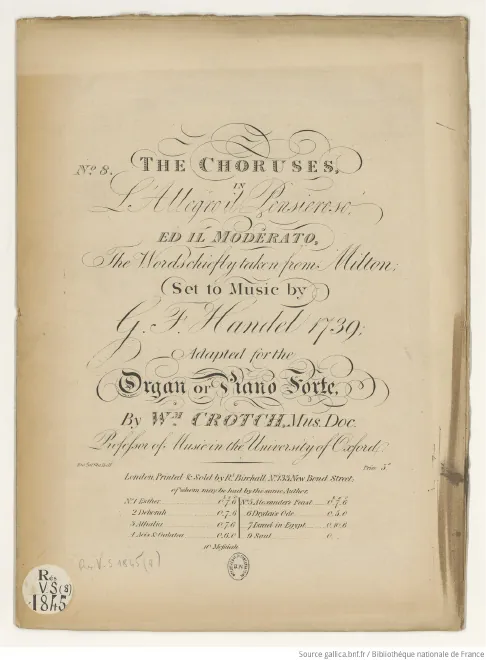 No. 8. THE CHORUSES,
IN
L'Allegro il Pensieroso,
ED IL MODERATO,
The Words chiefly taken from Milton;
Set to Music by
G. F. Handel 1739;
Adapted for the
Organ or Piano Forte,
By Wm. CROTCH, Mus. Doc.
Professor of Music in the University of Oxford.
Price 5s
London, Printed & Sold by Rt. Birchall, No. 133 New Bond Street;
of whom may be had by the same Author,
No. 1 Esther 0.7.6
No. 5 Alexander's Feast
2 Deborah 0.7.6
6 Dryden's Ode 0.5.0
3 Athalia 0.7.6
7 Israel in Egypt 0.10.6
4 Acis & Galatea 0.6.0
9 Saul 0.
10 Messiah
Rés V.S 1845 (8)
Rés
V.S (8)
1845
Source gallica.bnf.fr / Bibliothèque nationale de France